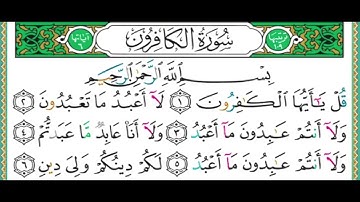 ترتيبها ١٠٩ سُورَةُ الكَافِرُونَ آياتها ٦
بِسْمِ اللَّهِ الرَّحْمَٰنِ الرَّحِيمِ
قُلْ يَٰٓأَيُّهَا ٱلْكَٰفِرُونَ ١ لَآ أَعْبُدُ مَا تَعْبُدُونَ ٢
وَلَآ أَنتُمْ عَٰبِدُونَ مَآ أَعْبُدُ ٣ وَلَآ أَنَا۠ عَابِدٌ مَّا عَبَدتُّمْ ٤
وَلَآ أَنتُمْ عَٰبِدُونَ مَآ أَعْبُدُ ٥ لَكُمْ دِينُكُمْ وَلِىَ دِينِ ٦